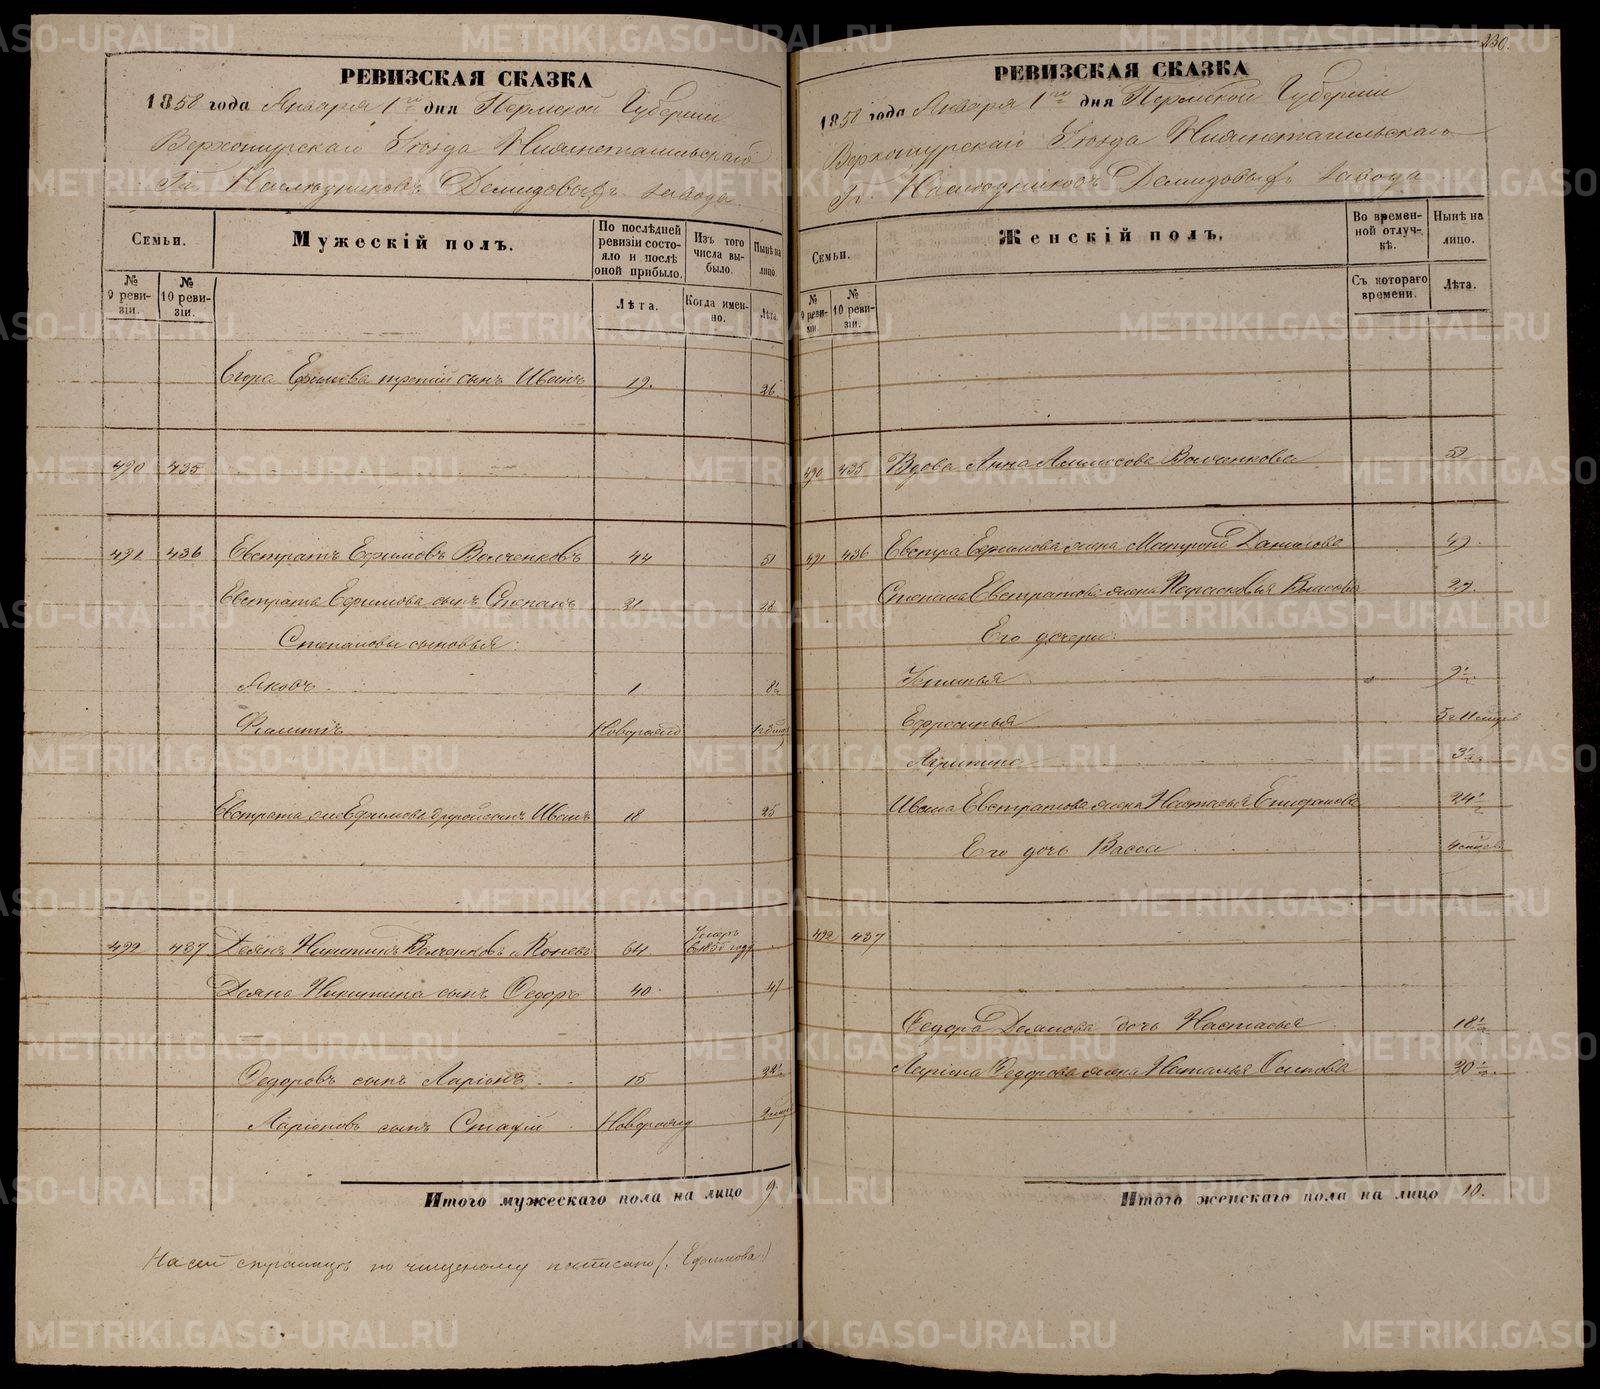 РЕВИЗСКАЯ СКАЗКА
1858 года Января 1го дня Пермской Губернии
Верхотурскаго Уѣзда Нижнетагильскаго
Гг. Наслѣдниковъ Демидовыхъ завода.
Семьи.
Мужескій полъ.
По послѣдней ревизіи состояло и послѣ оной прибыло.
Изъ того числа выбыло.
Нынѣ на лицо.
№ 9 ревизіи.
№ 10 ревизіи.
Лѣта.
Когда именно.
Лѣта.
Егора Ефимова третій сынъ Иванъ 19. 26.
490 435
491 436 Евстратъ Ефимовъ Волченковъ 44 51
Евстрата Ефимова сынъ Степанъ 21 28
Степановы сыновья:
Яковъ 1 8½
Филиппъ Новорожд
Евстрата же Ефимова другой сынъ Иванъ 18 25
492 437 Демянъ Никитинъ Волченковъ и Коневъ 64 Умеръ въ 1855 году
Демяна Никитина сынъ Федоръ 40. 47
Федоровъ сынъ Ларіонъ 15 22½
Ларіоновъ сынъ Стахій Новорожд
Итого мужескаго пола на лицо 9.
На сей страницѣ по чищеному написано /: Ефимова :/
230.
РЕВИЗСКАЯ СКАЗКА
1858 года Января 1го дня Пермской Губерніи
Верхотурскаго Уѣзда Нижнетагильскаго
Гг. Наслѣдниковъ Демидовыхъ завода
Семьи.
Женскій полъ.
Во временной отлучкѣ.
Нынѣ на лицо.
№ 9 ревизіи.
№ 10 ревизіи.
Съ котораго времени.
Лѣта.
490 435 Вдова Анна Волченкова
491 436 Ефимова жена Матрона Данилова 49.
Степана Евстратова жена Парасковья Власова 29.
Его дочери:
Устинья 9½
Ефросинья
Агрипина 3½
Ивана Евстратова жена Настасья Епифанова 24½
Его дочь Васса
492 437
Федора Демьянова дочь Настасья 18½
Ларіона Федорова жена Наталья Осипова
Итого женскаго пола на лицо 10.
METRIKI.GASO-URAL.RU